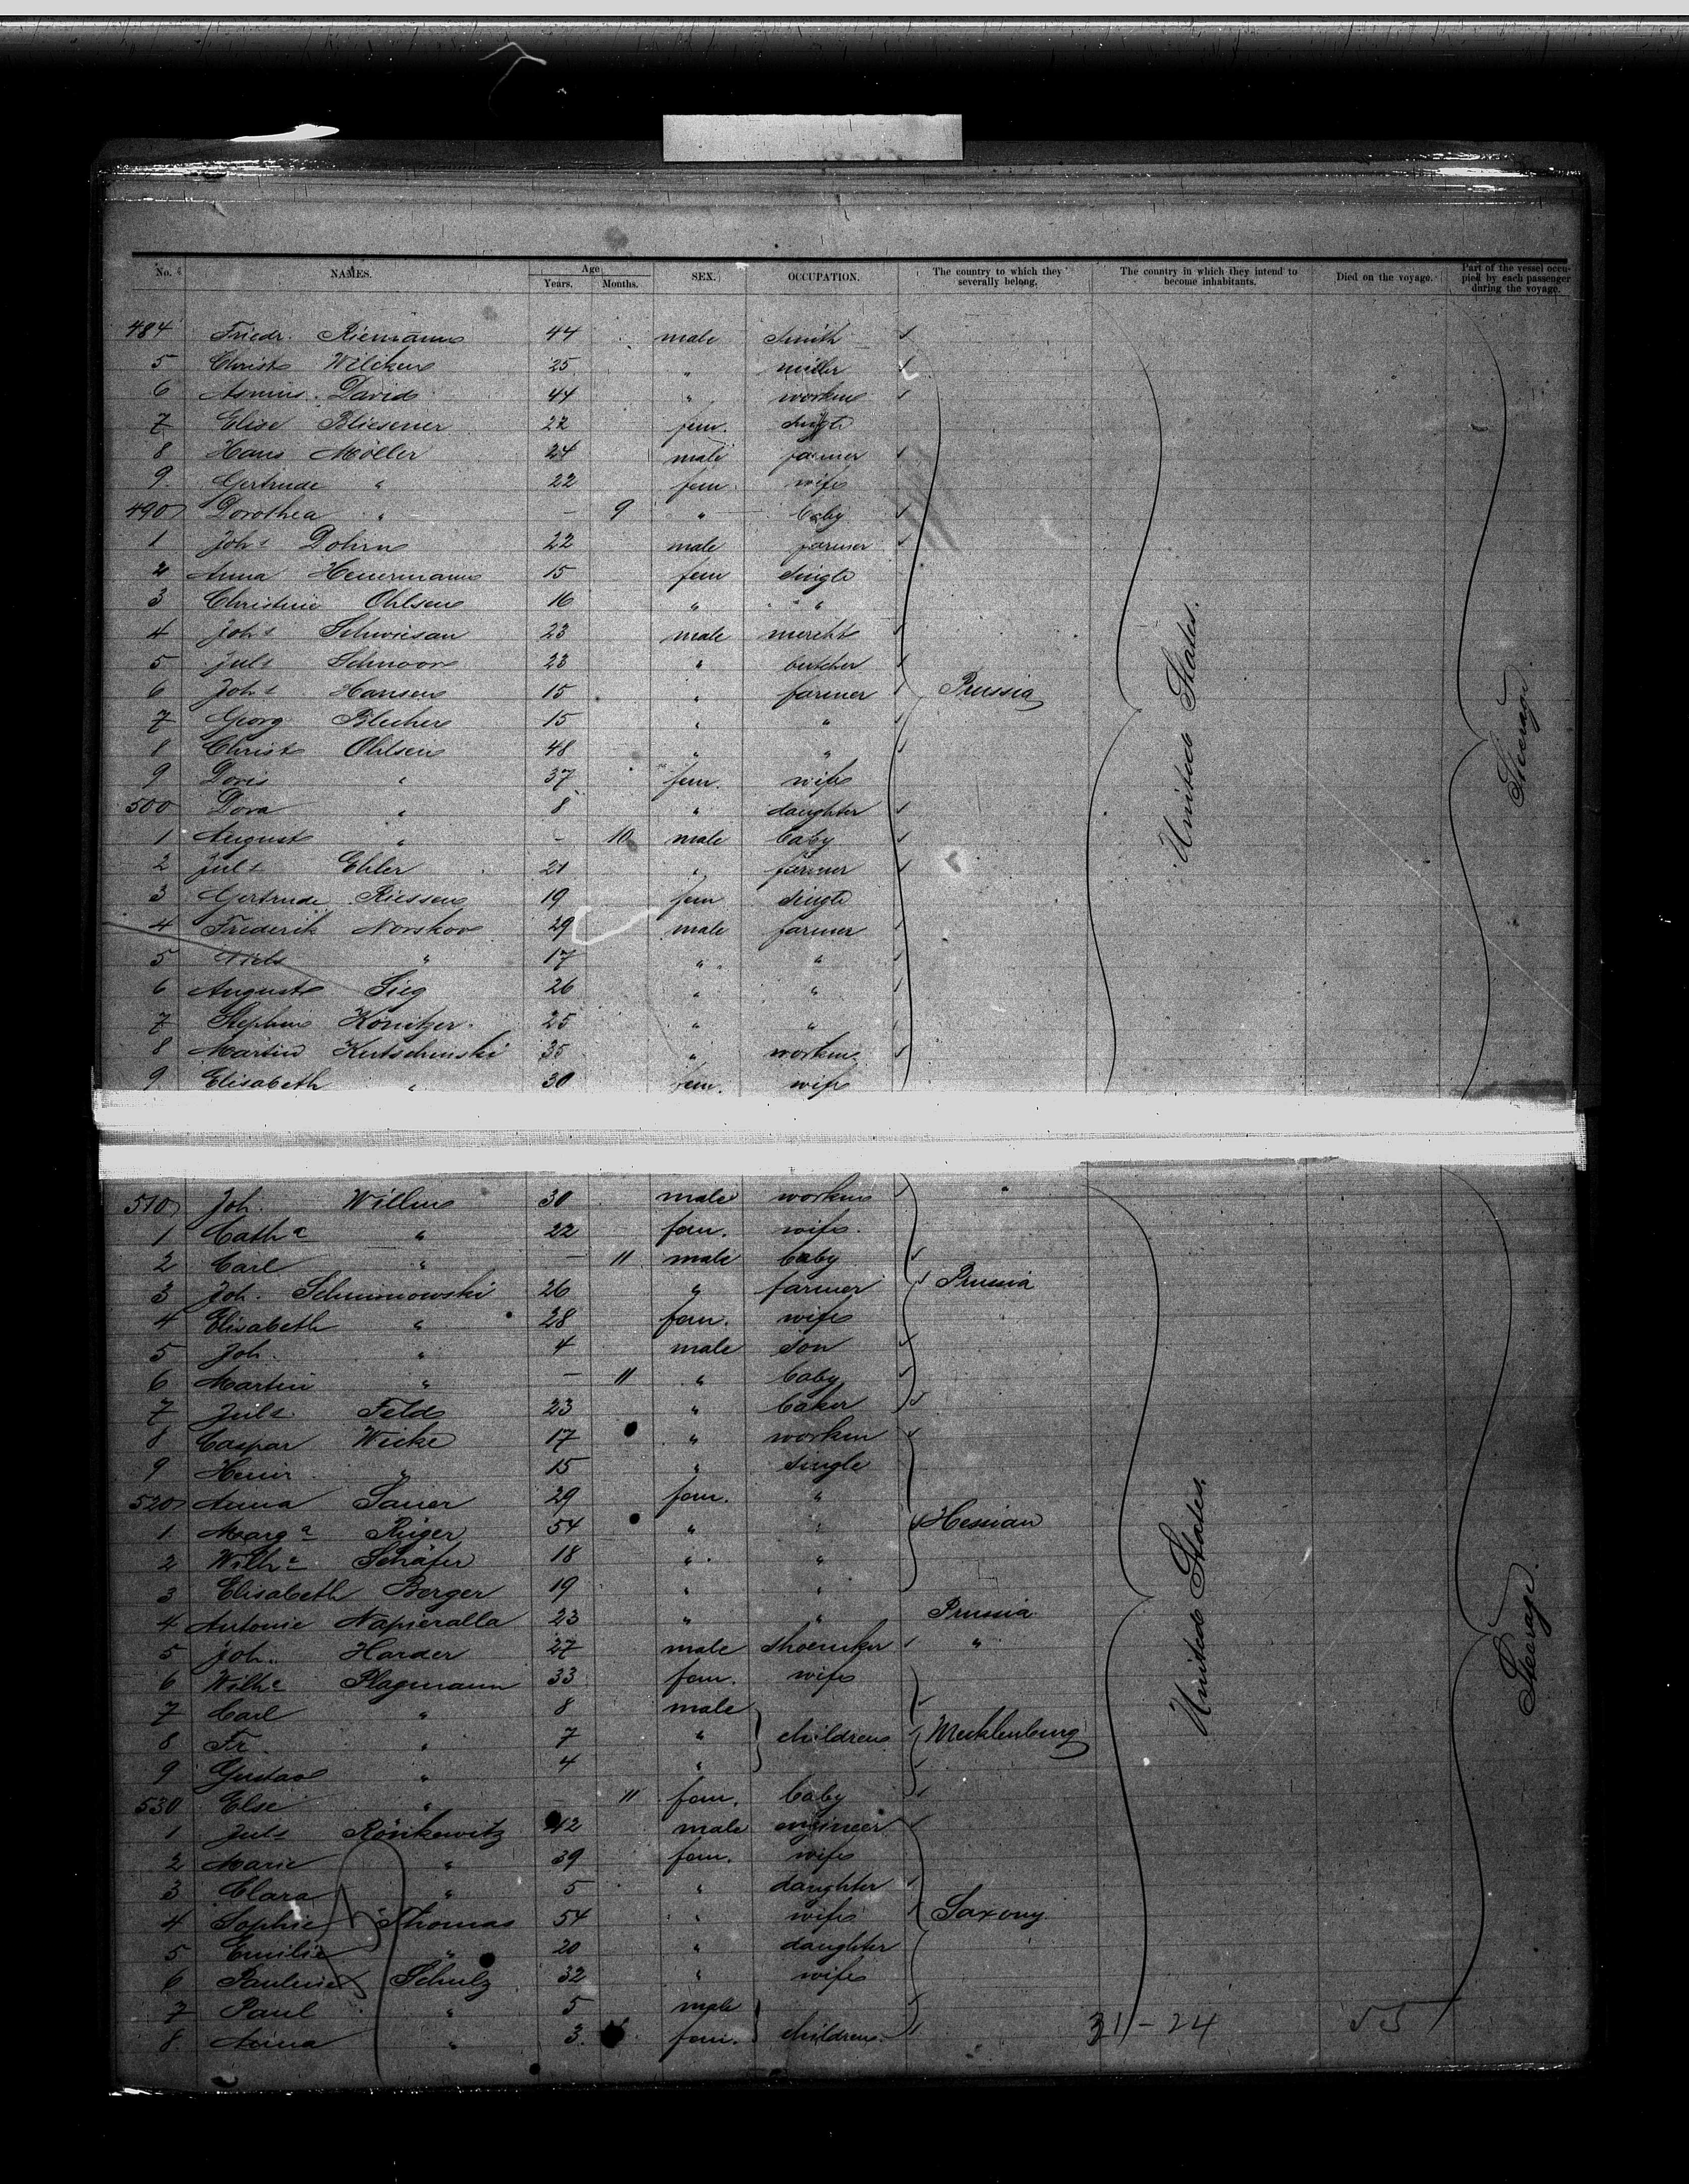 No. NAMES. Age Years. Months. SEX. OCCUPATION. The country to which they severally belong. The country in which they intend to become inhabitants. Died on the voyage. Part of the vessel occupied by each passenger during the voyage.
484 Friedr. Riemann 44 male Smith
5 Christ Wilckens 25 " miller
6 Asmus David 44 " workm
7 Elise Bliesener 22 fem. Single
8 Hans Möller 24 male farmer
9 Gertrude " 22 fem. wife
490 Dorothea " – 9 " baby
1 Johs Dohrn 22 male farmer
2 Anna Heuermann 15 fem Single
3 Christine Ohlsen 16 " "
4 Johs Schwiesau 23 male mercht
5 Juls Schnoor 23 " butcher
6 Johs Hansen 15 " farmer Prussia United States. Steerage
7 Georg Blecher 15 " "
8 Christ Ohlsen 48 " "
9 Doris " 37 fem. wife
500 Dora " 8 " daughter
1 August " – 10 male baby
2 Juls Ehler 21 " farmer
3 Gertrude Riessen 19 fem Single
4 Frederik Norskov 29 male farmer
5 Niels " 17 " "
6 August Sieg 26 " "
7 Stephan Konitzer 25 " "
8 Martin Kutschinski 35 " workm.
9 Elisabeth " 30 fem. wife
510 Joh. Willms 30 male workm
1 Catha " 22 fem. wife.
2 Carl " – 11 male baby
3 Joh. Schimonowski 26 " farmer Prussia
4 Elisabeth " 28 fem. wife
5 Joh. " 4 male son
6 Martin " – 11 " baby
7 Juls. Feld 23 " baker
8 Caspar Wicke 17 " workm
9 Heinr. " 15 " Single
520 Anna Sauer 29 fem. "
1 Marga Rüger 54 " " Hessian
2 Wilhe Schäfer 18 " "
3 Elisabeth Berger 19 " "
4 Antonie Napieralla 23 " " Prussia
5 Joh. Harder 27 male Shoemker "
6 Wilhe Plagmann 33 fem. wife
7 Carl " 8 male
8 Fr. " 7 " children Mecklenburg United States. Steerage.
9 Gustav " 4 "
530 Else " – 11 fem. baby
1 Juls Rönkewitz 42 male engineer
2 Marie " 39 fem. wife
3 Clara " 5 " daughter
4 Sophie Thomas 54 " wife Saxony
5 Emilie " 20 " daughter
6 Pauline Schulz 32 " wife
7 Paul " 5 male
8 Anna " 3 fem. children 31-24 55